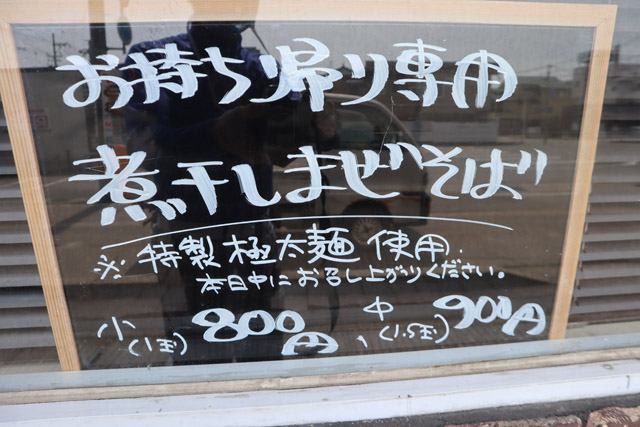 お持ち帰り専用
煮干しまぜそば
※特製極太麺使用.
本日中にお召し上がりください。
小(1玉)800円、中(1.5玉)900円